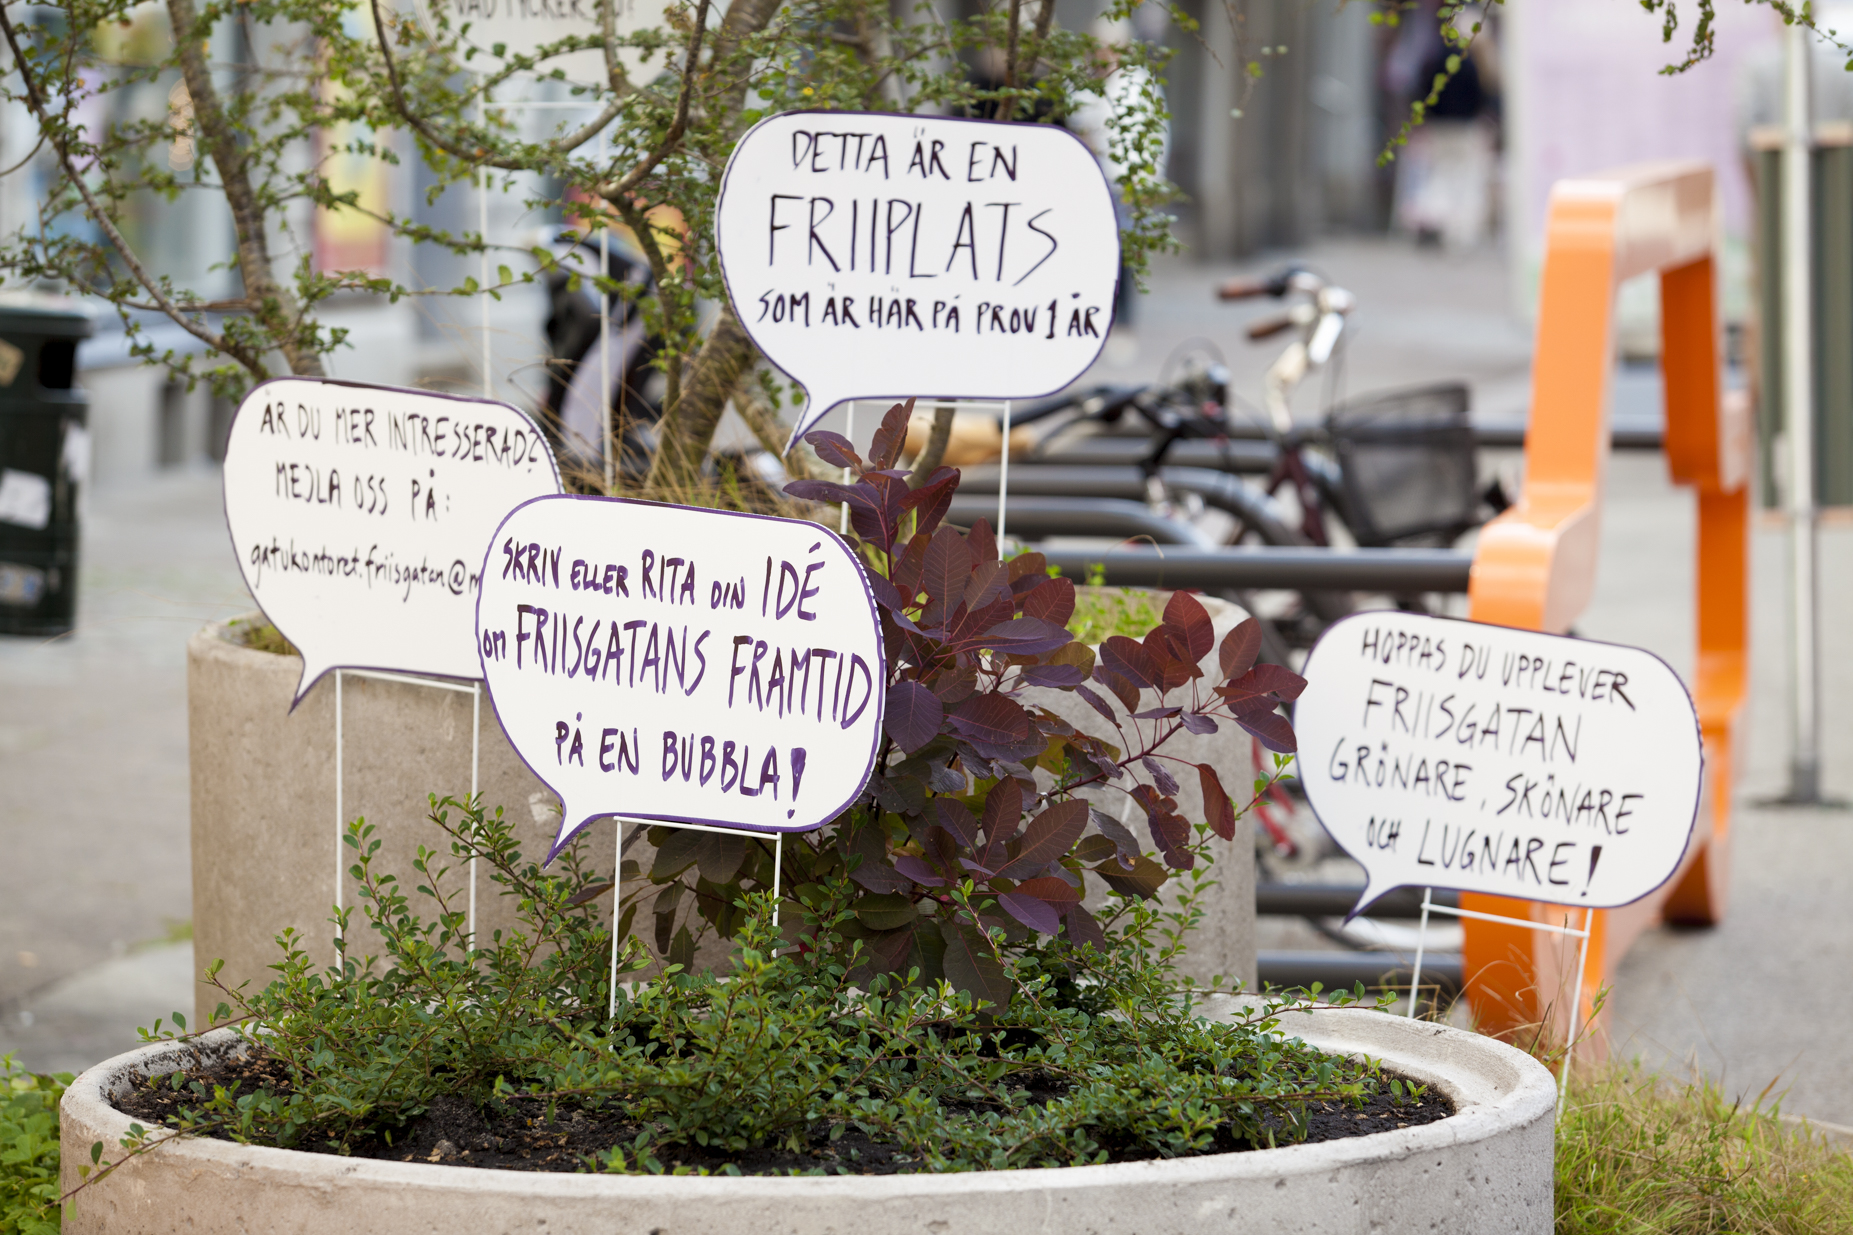 VAD TYCKER DU?
DETTA ÄR EN
FRIIPLATS
SOM ÄR HÄR PÅ PROV 1 ÅR
ÄR DU MER INTRESSERAD?
MEJLA OSS PÅ:
gatukontoret.friisgatan@m
SKRIV ELLER RITA DIN IDÉ
OM FRIISGATANS FRAMTID
PÅ EN BUBBLA!
HOPPAS DU UPPLEVER
FRIISGATAN
GRÖNARE, SKÖNARE
OCH LUGNARE!